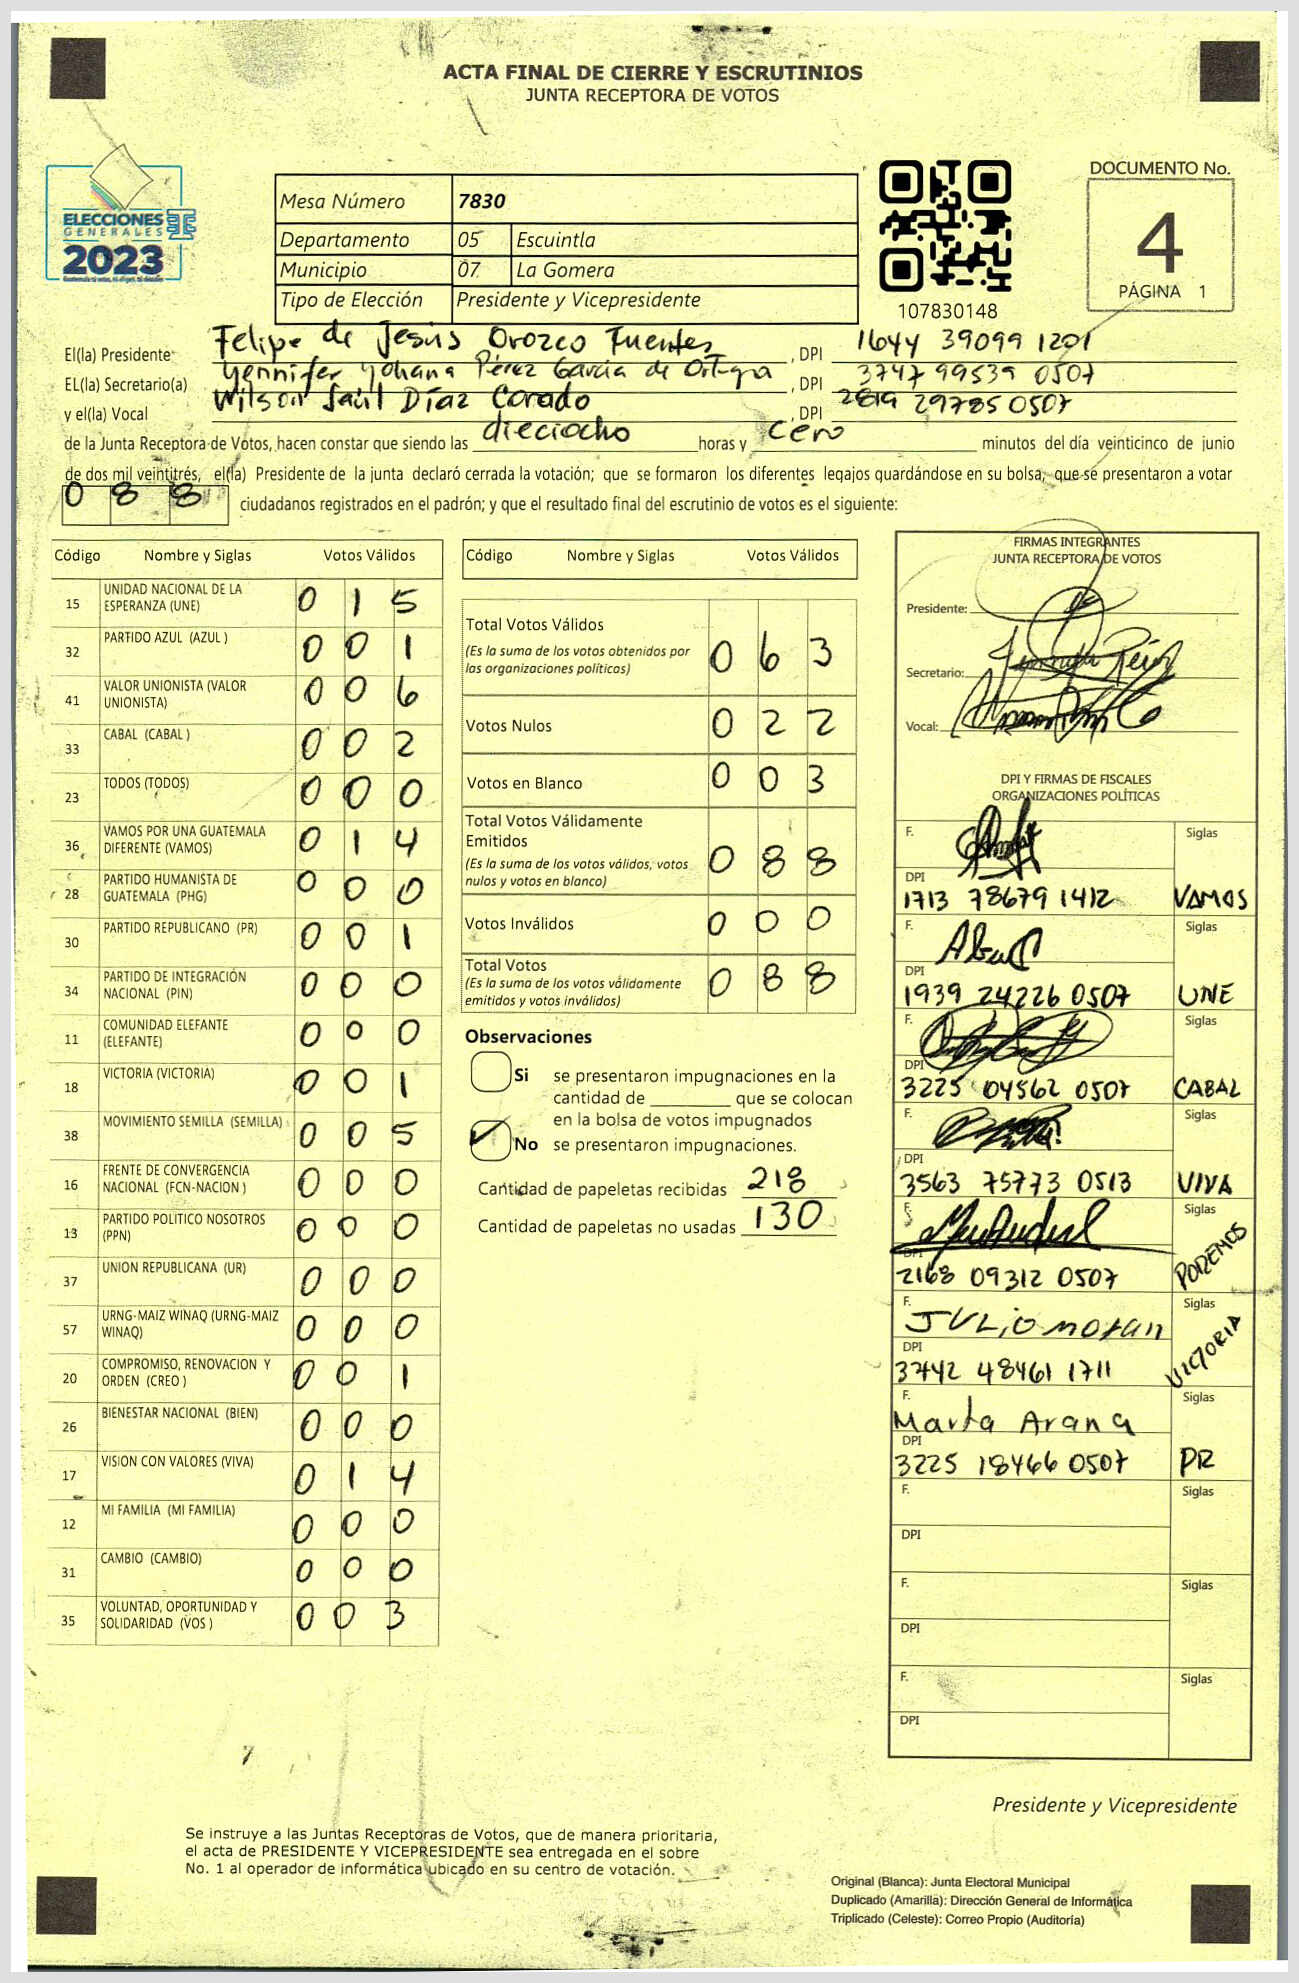 ACTA FINAL DE CIERRE Y ESCRUTINIOS
JUNTA RECEPTORA DE VOTOS
ELECCIONES
GENERALES
2023
Mesa Número 7830
Departamento 05 Escuintla
Municipio 07 La Gomera
Tipo de Elección Presidente y Vicepresidente
107830148
DOCUMENTO No.
4
PÁGINA 1
El(la) Presidente Felipe de Jesús Orozco Fuentes, DPI 1644 39099 1201
EL(la) Secretario(a) Yennifer Yohana Pérez García de Ortega, DPI 3747 99539 0507
y el(la) Vocal Wilson Saúl Díaz Corado, DPI 2819 29785 0507
de la Junta Receptora de Votos, hacen constar que siendo las dieciocho horas y cero minutos del día veinticinco de junio
de dos mil veintitrés, el(la) Presidente de la junta declaró cerrada la votación; que se formaron los diferentes legajos guardándose en su bolsa, que se presentaron a votar
0 8 8 ciudadanos registrados en el padrón; y que el resultado final del escrutinio de votos es el siguiente:
Código Nombre y Siglas Votos Válidos
15 UNIDAD NACIONAL DE LA ESPERANZA (UNE) 0 1 5
32 PARTIDO AZUL (AZUL ) 0 0 1
41 VALOR UNIONISTA (VALOR UNIONISTA) 0 0 6
33 CABAL (CABAL ) 0 0 2
23 TODOS (TODOS) 0 0 0
36 VAMOS POR UNA GUATEMALA DIFERENTE (VAMOS) 0 1 4
28 PARTIDO HUMANISTA DE GUATEMALA (PHG) 0 0 0
30 PARTIDO REPUBLICANO (PR) 0 0 1
34 PARTIDO DE INTEGRACIÓN NACIONAL (PIN) 0 0 0
11 COMUNIDAD ELEFANTE (ELEFANTE) 0 0 0
18 VICTORIA (VICTORIA) 0 0 1
38 MOVIMIENTO SEMILLA (SEMILLA) 0 0 5
16 FRENTE DE CONVERGENCIA NACIONAL (FCN-NACION ) 0 0 0
13 PARTIDO POLITICO NOSOTROS (PPN) 0 0 0
37 UNION REPUBLICANA (UR) 0 0 0
57 URNG-MAIZ WINAQ (URNG-MAIZ WINAQ) 0 0 0
20 COMPROMISO, RENOVACION Y ORDEN (CREO ) 0 0 1
26 BIENESTAR NACIONAL (BIEN) 0 0 0
17 VISION CON VALORES (VIVA) 0 1 4
12 MI FAMILIA (MI FAMILIA) 0 0 0
31 CAMBIO (CAMBIO) 0 0 0
35 VOLUNTAD, OPORTUNIDAD Y SOLIDARIDAD (VOS ) 0 0 3
Código Nombre y Siglas Votos Válidos
Total Votos Válidos
(Es la suma de los votos obtenidos por las organizaciones políticas) 0 6 3
Votos Nulos 0 2 2
Votos en Blanco 0 0 3
Total Votos Válidamente Emitidos
(Es la suma de los votos válidos, votos nulos y votos en blanco) 0 8 8
Votos Inválidos 0 0 0
Total Votos
(Es la suma de los votos válidamente emitidos y votos inválidos) 0 8 8
Observaciones
Si se presentaron impugnaciones en la
cantidad de ________ que se colocan
en la bolsa de votos impugnados
No se presentaron impugnaciones.
Cantidad de papeletas recibidas 218
Cantidad de papeletas no usadas 130
FIRMAS INTEGRANTES
JUNTA RECEPTORA DE VOTOS
Presidente:
Secretario:
Vocal:
DPI Y FIRMAS DE FISCALES
ORGANIZACIONES POLÍTICAS
F. Siglas
DPI 1713 78679 1412 VAMOS
F. Siglas
DPI 1939 24226 0507 UNE
F. Siglas
DPI 3225 04562 0507 CABAL
F. Siglas
DPI 3563 75773 0513 VIVA
F. Siglas
DPI 2168 09312 0507 PODEMOS
F. JULio moran Siglas
DPI 3742 48461 1711 VICTORIA
F. Marta Arana Siglas
DPI 3225 18466 0507 PR
F. Siglas
DPI
F. Siglas
DPI
F. Siglas
DPI
Presidente y Vicepresidente
Se instruye a las Juntas Receptoras de Votos, que de manera prioritaria,
el acta de PRESIDENTE Y VICEPRESIDENTE sea entregada en el sobre
No. 1 al operador de informática ubicado en su centro de votación.
Original (Blanca): Junta Electoral Municipal
Duplicado (Amarilla): Dirección General de Informática
Triplicado (Celeste): Correo Propio (Auditoría)